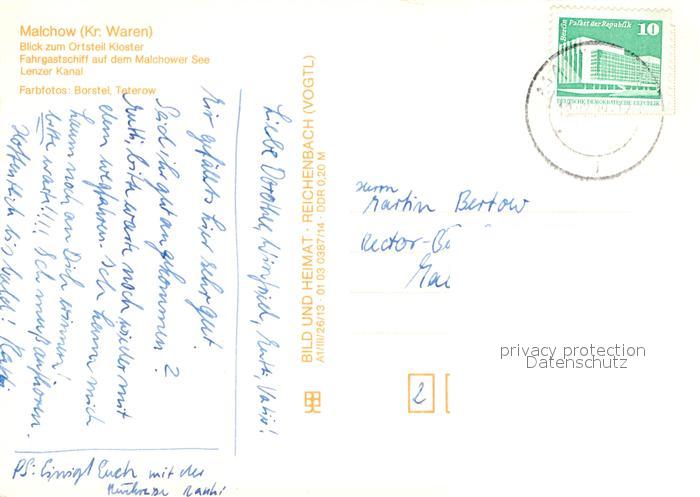 Malchow (Kr. Waren)
Blick zum Ortsteil Kloster
Fahrgastschiff auf dem Malchower See
Lenzer Kanal
Farbfotos: Borstel, Teterow
Berlin Palast der Republik
10
DEUTSCHE DEMOKRATISCHE REPUBLIK
BILD UND HEIMAT · REICHENBACH (VOGTL)
A1/III/26/13 · 01 03 0387/14 · DDR 0,20 M
Liebe Dorothee, Winfried,
Mir gefällt's hier sehr gut.
Seid ihr gut angekommen?
bitte warte noch wieder mit
dem wegfahren. Ich kann mich
kaum noch an Dich erinnern!
bitte warte!!!! Ich muß aufhören.
Hoffentlich bis bald!
PS: Einigt Euch mit der
Herrn
Martin Bertow
Rector-
2
privacy protection
Datenschutz